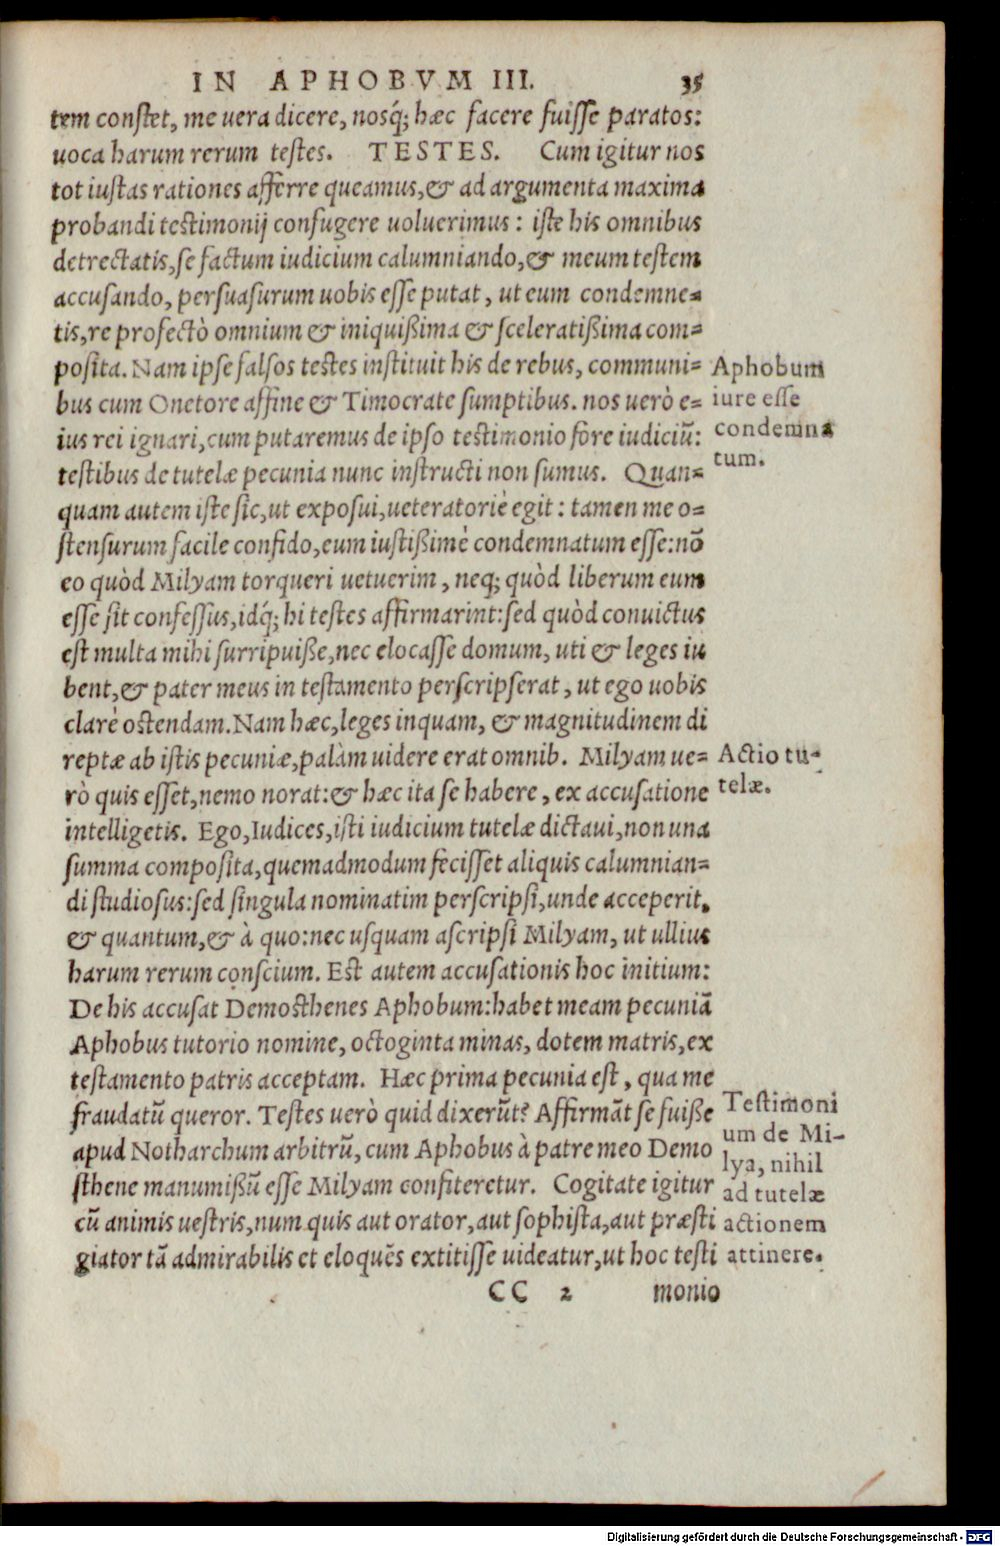 IN APHOBVM III. 35
tem constet, me uera dicere, nosq́; hæc facere fuisse paratos:
uoca harum rerum testes. TESTES. Cum igitur nos
tot iustas rationes afferre queamus,& ad argumenta maxima
probandi testimonij confugere uoluerimus: iste his omnibus
detrectatis,se factum iudicium calumniando,& meum testem
accusando, persuasurum uobis esse putat, ut eum condemne=
tis,re profectò omnium & iniquißima & sceleratißima com=
posita. Nam ipse falsos testes instituit his de rebus, communi=
bus cum Onetore affine & Timocrate sumptibus. nos uerò e=
ius rei ignari,cum putaremus de ipso testimonio fore iudiciũ:
testibus de tutelæ pecunia nunc instructi non sumus. Quan=
quam autem iste sic,ut exposui,ueteratoriè egit: tamen me o=
stensurum facile confido,eum iustißimè condemnatum esse:nõ
eo quòd Milyam torqueri uetuerim, neq; quòd liberum eum
esse sit confessus,idq́; hi testes affirmarint:sed quòd conuictus
est multa mihi surripuiße,nec elocasse domum, uti & leges iu
bent,& pater meus in testamento perscripserat, ut ego uobis
clarè ostendam.Nam hæc,leges inquam, & magnitudinem di
reptæ ab istis pecuniæ,palàm uidere erat omnib. Milyam ue=
rò quis esset,nemo norat:& hæc ita se habere, ex accusatione
intelligetis. Ego,Iudices,isti iudicium tutelæ dictaui,non una
summa composita,quemadmodum fecisset aliquis calumnian=
di studiosus:sed singula nominatim perscripsi,unde acceperit,
& quantum,& à quo:nec usquam ascripsi Milyam, ut ullius
harum rerum conscium. Est autem accusationis hoc initium:
De his accusat Demosthenes Aphobum:habet meam pecuniã
Aphobus tutorio nomine, octoginta minas, dotem matris,ex
testamento patris acceptam. Hæc prima pecunia est, qua me
fraudatũ queror. Testes uerò quid dixerũt? Affirmãt se fuiße
apud Notharchum arbitrũ, cum Aphobus à patre meo Demo
sthene manumißũ esse Milyam confiteretur. Cogitate igitur
cũ animis uestris,num quis aut orator,aut sophista,aut præsti
giator tã admirabilis et eloquẽs extitisse uideatur,ut hoc testi
CC 2 monio
Aphobum
iure esse
condemna
tum.
Actio tu-
telæ.
Testimoni
um de Mi-
lya, nihil
ad tutelæ
actionem
attinere.
Digitalisierung gefördert durch die Deutsche Forschungsgemeinschaft - DFG